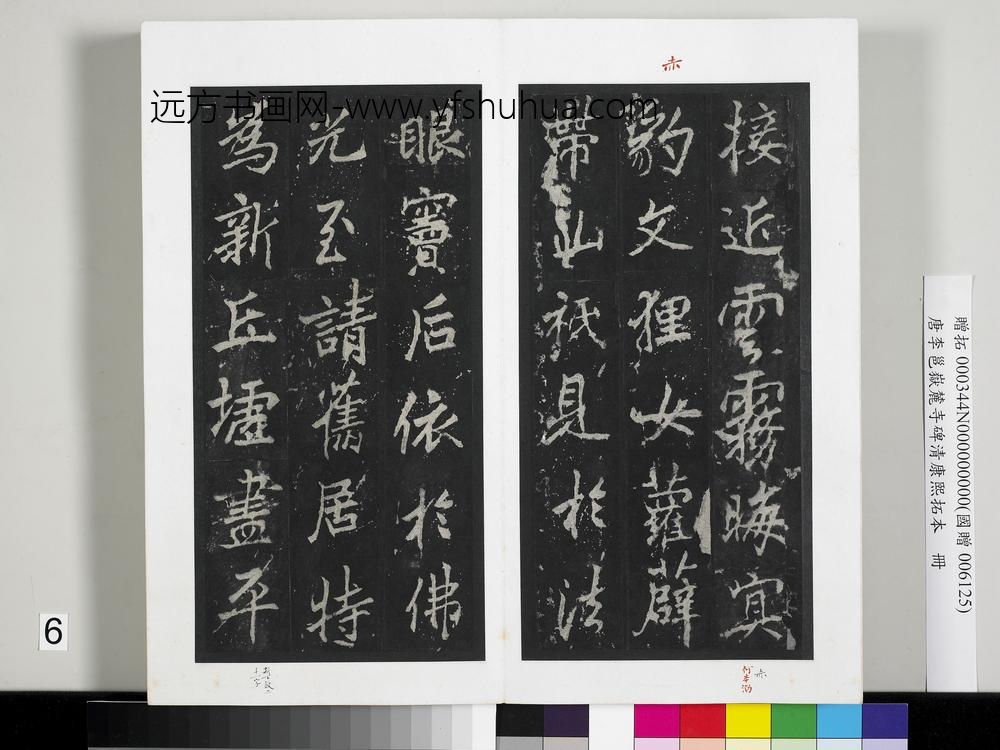 远方书画网-www.yfshuhua.com
赤
接近雲霧晦冥
豹文狸女蘿薜
帶山祇見於法
眼竇后依於佛
光至請舊居特
為新丘壚盡平
贈拓 000344N000000000(國贈 006125)
唐李邕嶽麓寺碑清康熙拓本 冊
6